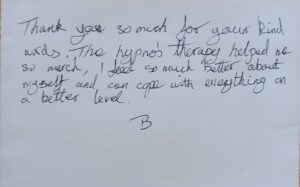 Thank you so much for your kind
words. The hypno's therapy helped me
so much, I feel so much better about
myself and can cope with everything on
a better level.
B